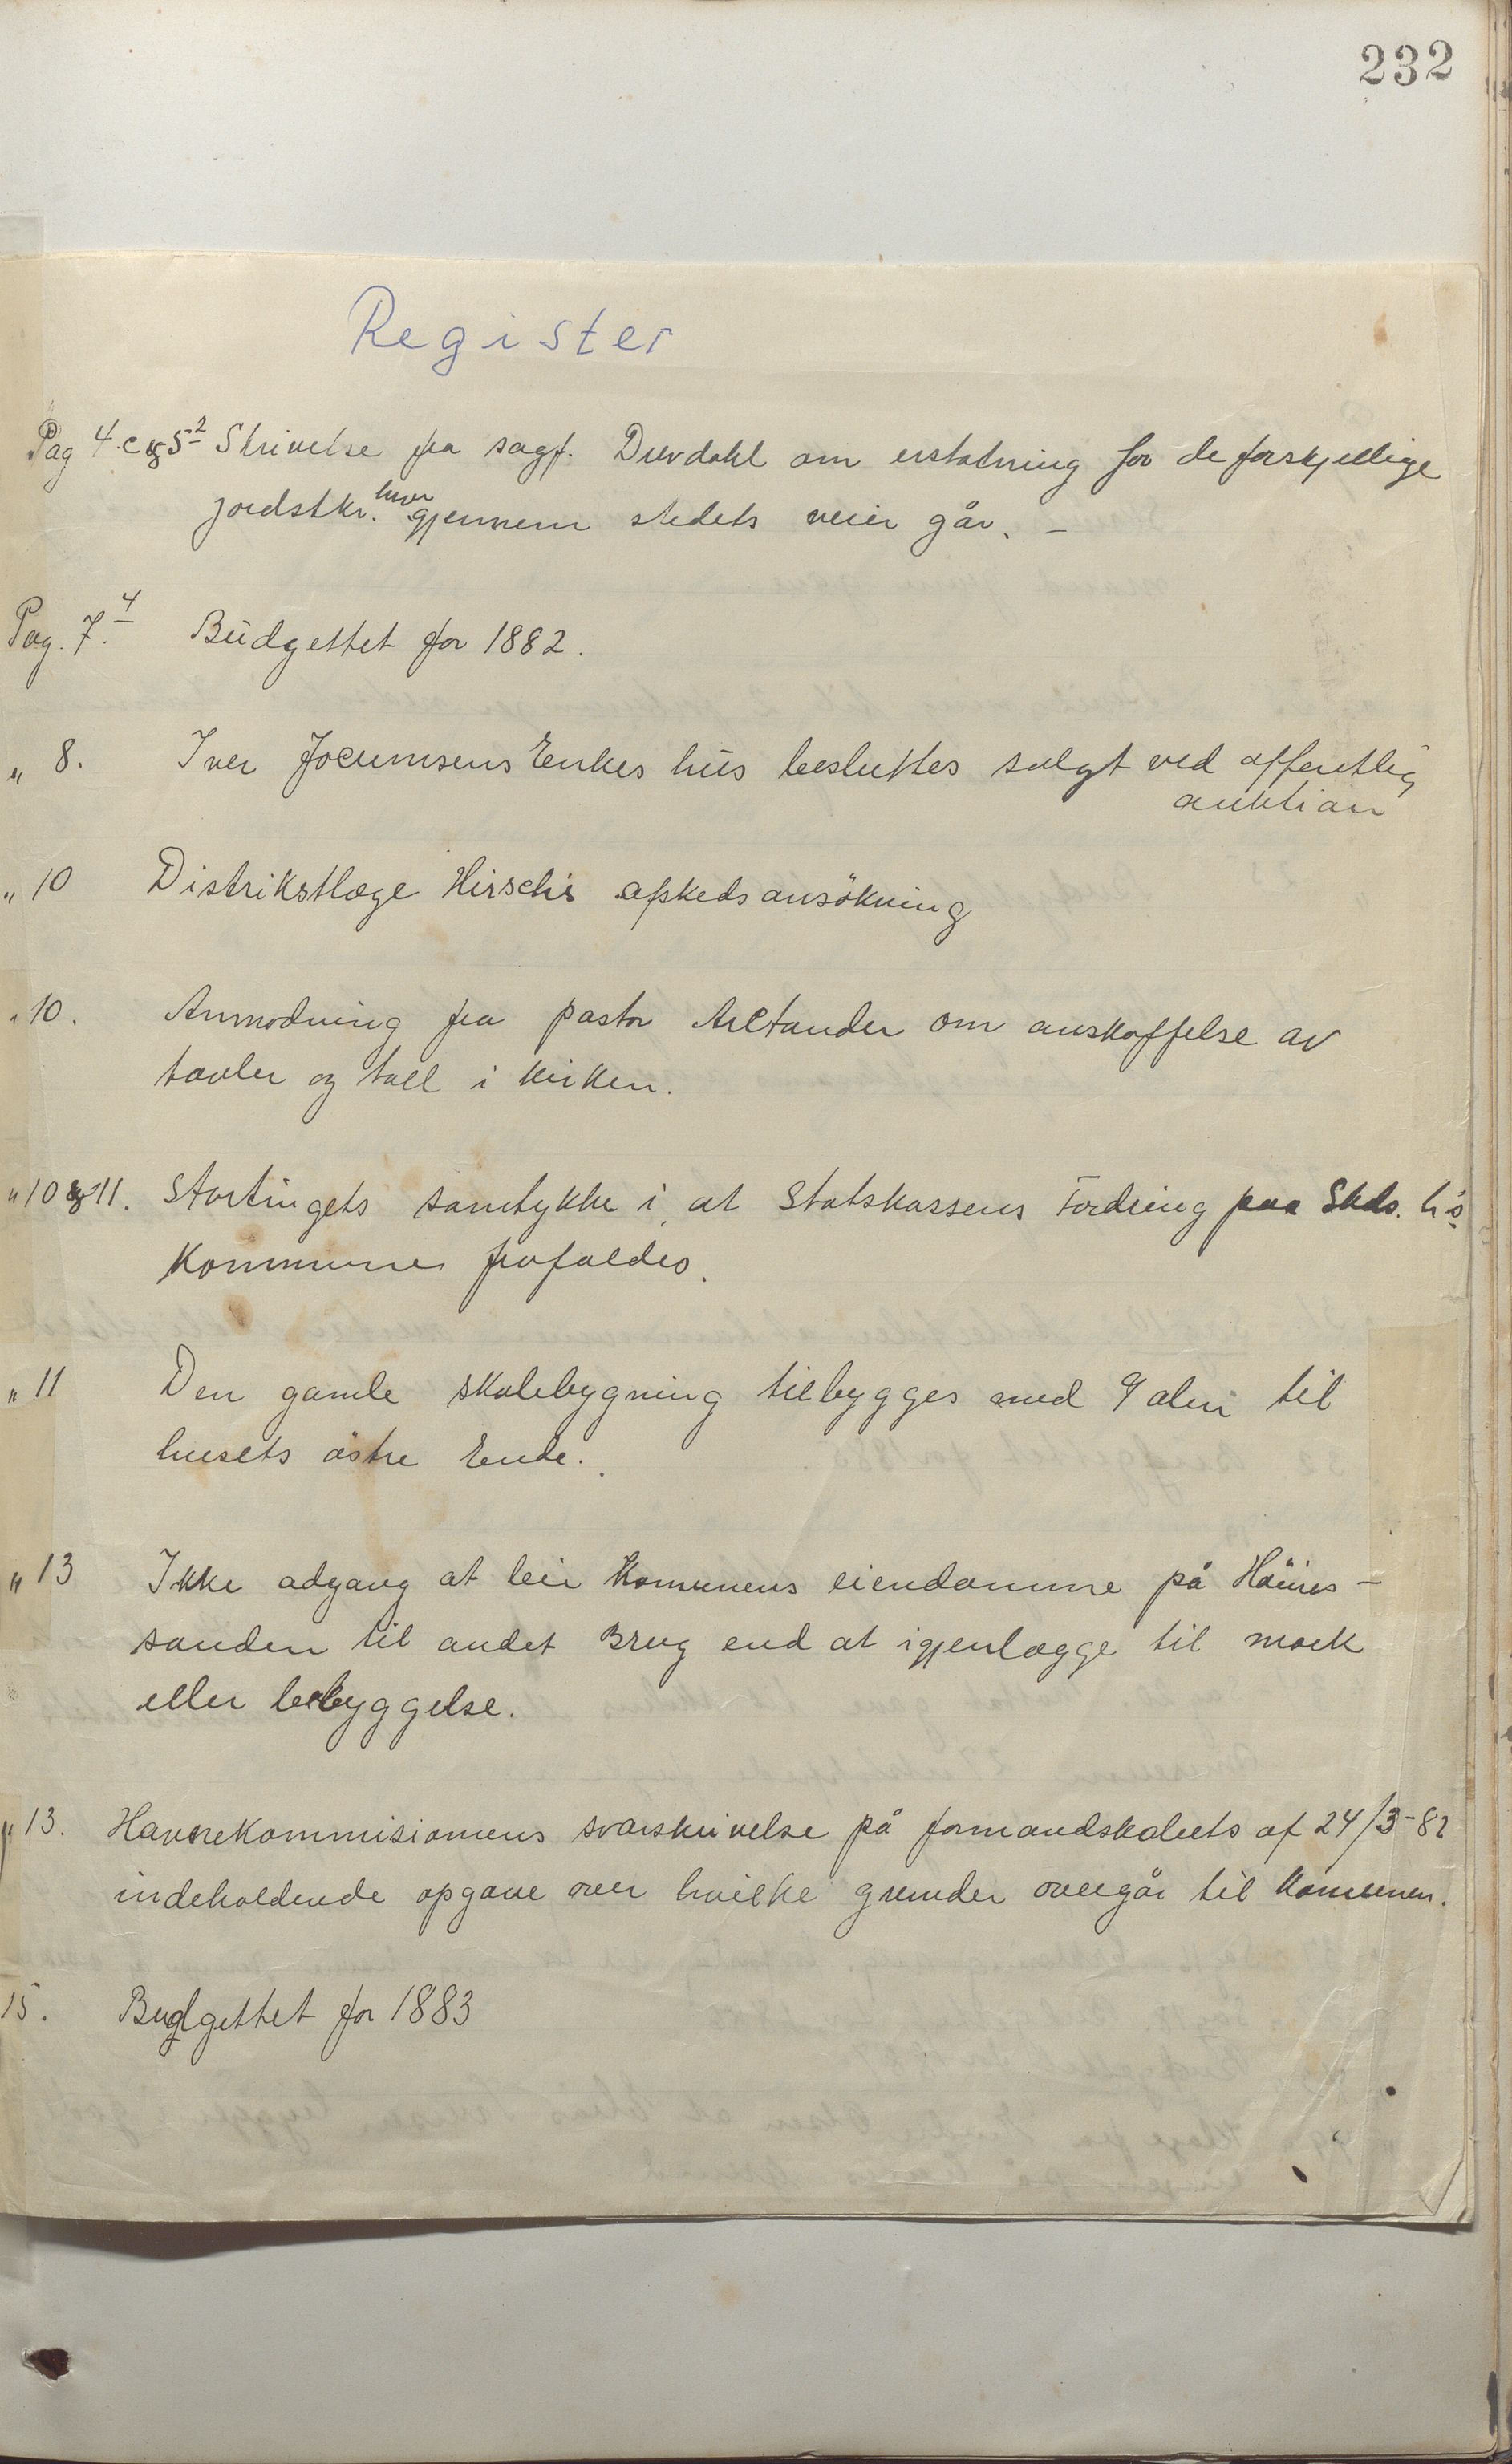 232
Register
Pag 4. c og 5 2 Skrivelse fra sagf. Duvdahl om erstatning for de forskjellige
jordstkr. hvor gjennem stedets veier går. –
Pag. 7. 4 Budgettet for 1882.
" 8. Iver Jocumsens Enkes hus besluttes solgt ved offentlig
auktion
" 10 Distrikstlæge Hirsch's afskedsansökning
" 10. Anmodning fra pastor Arctander om anskaffelse av
tavler og tall i kirken.
" 10 og 11. Stortingets samtykke i, at Statskassens Fordring paa
Kommune frafaldes.
" 11 Den gamle skolebygning tilbygges med 9 alen til
husets östre Ende.
" 13 Ikke adgang at leie Komunens eiendomme på
sanden til andet Brug end at igjenlægge til mark
eller bebyggelse.
" 13. Havnekommisionens svarskrivelse på formandskabets af 24/3-82
indeholdende opgave over hvilke grunder overgår til Komunen.
15. Budgettet for 1883